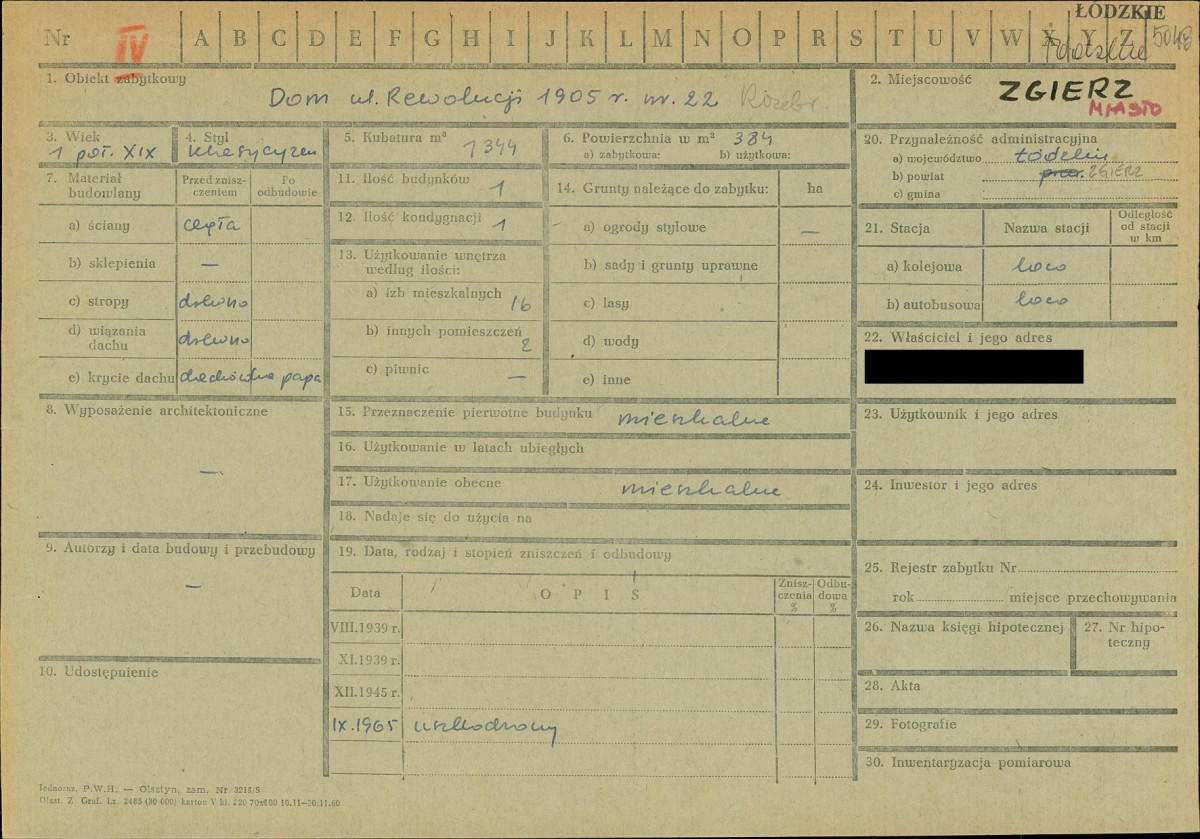 ŁÓDZKIE
Nr IV A B C D E F G H I J K L M N O P R S T U V W X Y Z 5048
1. Obiekt zabytkowy
Dom ul. Rewolucji 1905 r. nr. 22 Rozebr.
2. Miejscowość
ZGIERZ
MIASTO
3. Wiek
1 poł. XIX
4. Styl
klasycyzm
5. Kubatura m³
1344
6. Powierzchnia w m² 384
a) zabytkowa: b) użytkowa:
20. Przynależność administracyjna
a) województwo łódzkie
b) powiat ZGIERZ
c) gmina
7. Materiał budowlany
Przed znisz-
czeniem
Po
odbudowie
a) ściany cegła
b) sklepienia —
c) stropy drewno
d) wiązania
dachu drewno
e) krycie dachu dachówka papa
11. Ilość budynków 1
12. Ilość kondygnacji 1
13. Użytkowanie wnętrza
według ilości:
a) izb mieszkalnych 16
b) innych pomieszczeń 2
c) piwnic —
14. Grunty należące do zabytku: ha
a) ogrody stylowe —
b) sady i grunty uprawne
c) lasy
d) wody
e) inne
21. Stacja Nazwa stacji
Odległość
od stacji
w km
a) kolejowa loco
b) autobusowa loco
22. Właściciel i jego adres
8. Wyposażenie architektoniczne
—
15. Przeznaczenie pierwotne budynku mieszkalne
16. Użytkowanie w latach ubiegłych
17. Użytkowanie obecne mieszkalne
18. Nadaje się do użycia na
23. Użytkownik i jego adres
24. Inwestor i jego adres
9. Autorzy i data budowy i przebudowy
—
19. Data, rodzaj i stopień zniszczeń i odbudowy
Data OPIS
Znisz-
czenia
%
Odbu-
dowa
%
VIII.1939 r.
XI.1939 r.
XII.1945 r.
IX.1965 uszkodzony
25. Rejestr zabytku Nr
rok miejsce przechowywania
26. Nazwa księgi hipotecznej
27. Nr hipo-
teczny
10. Udostępnienie
28. Akta
29. Fotografie
30. Inwentaryzacja pomiarowa
Jednoraz. P.W.H. — Olsztyn, zam. Nr 3215/S
Olszt. Z. Graf. Lz. 2485 (30 000) karton V kl. 220 70x100 10.11—30.11.60